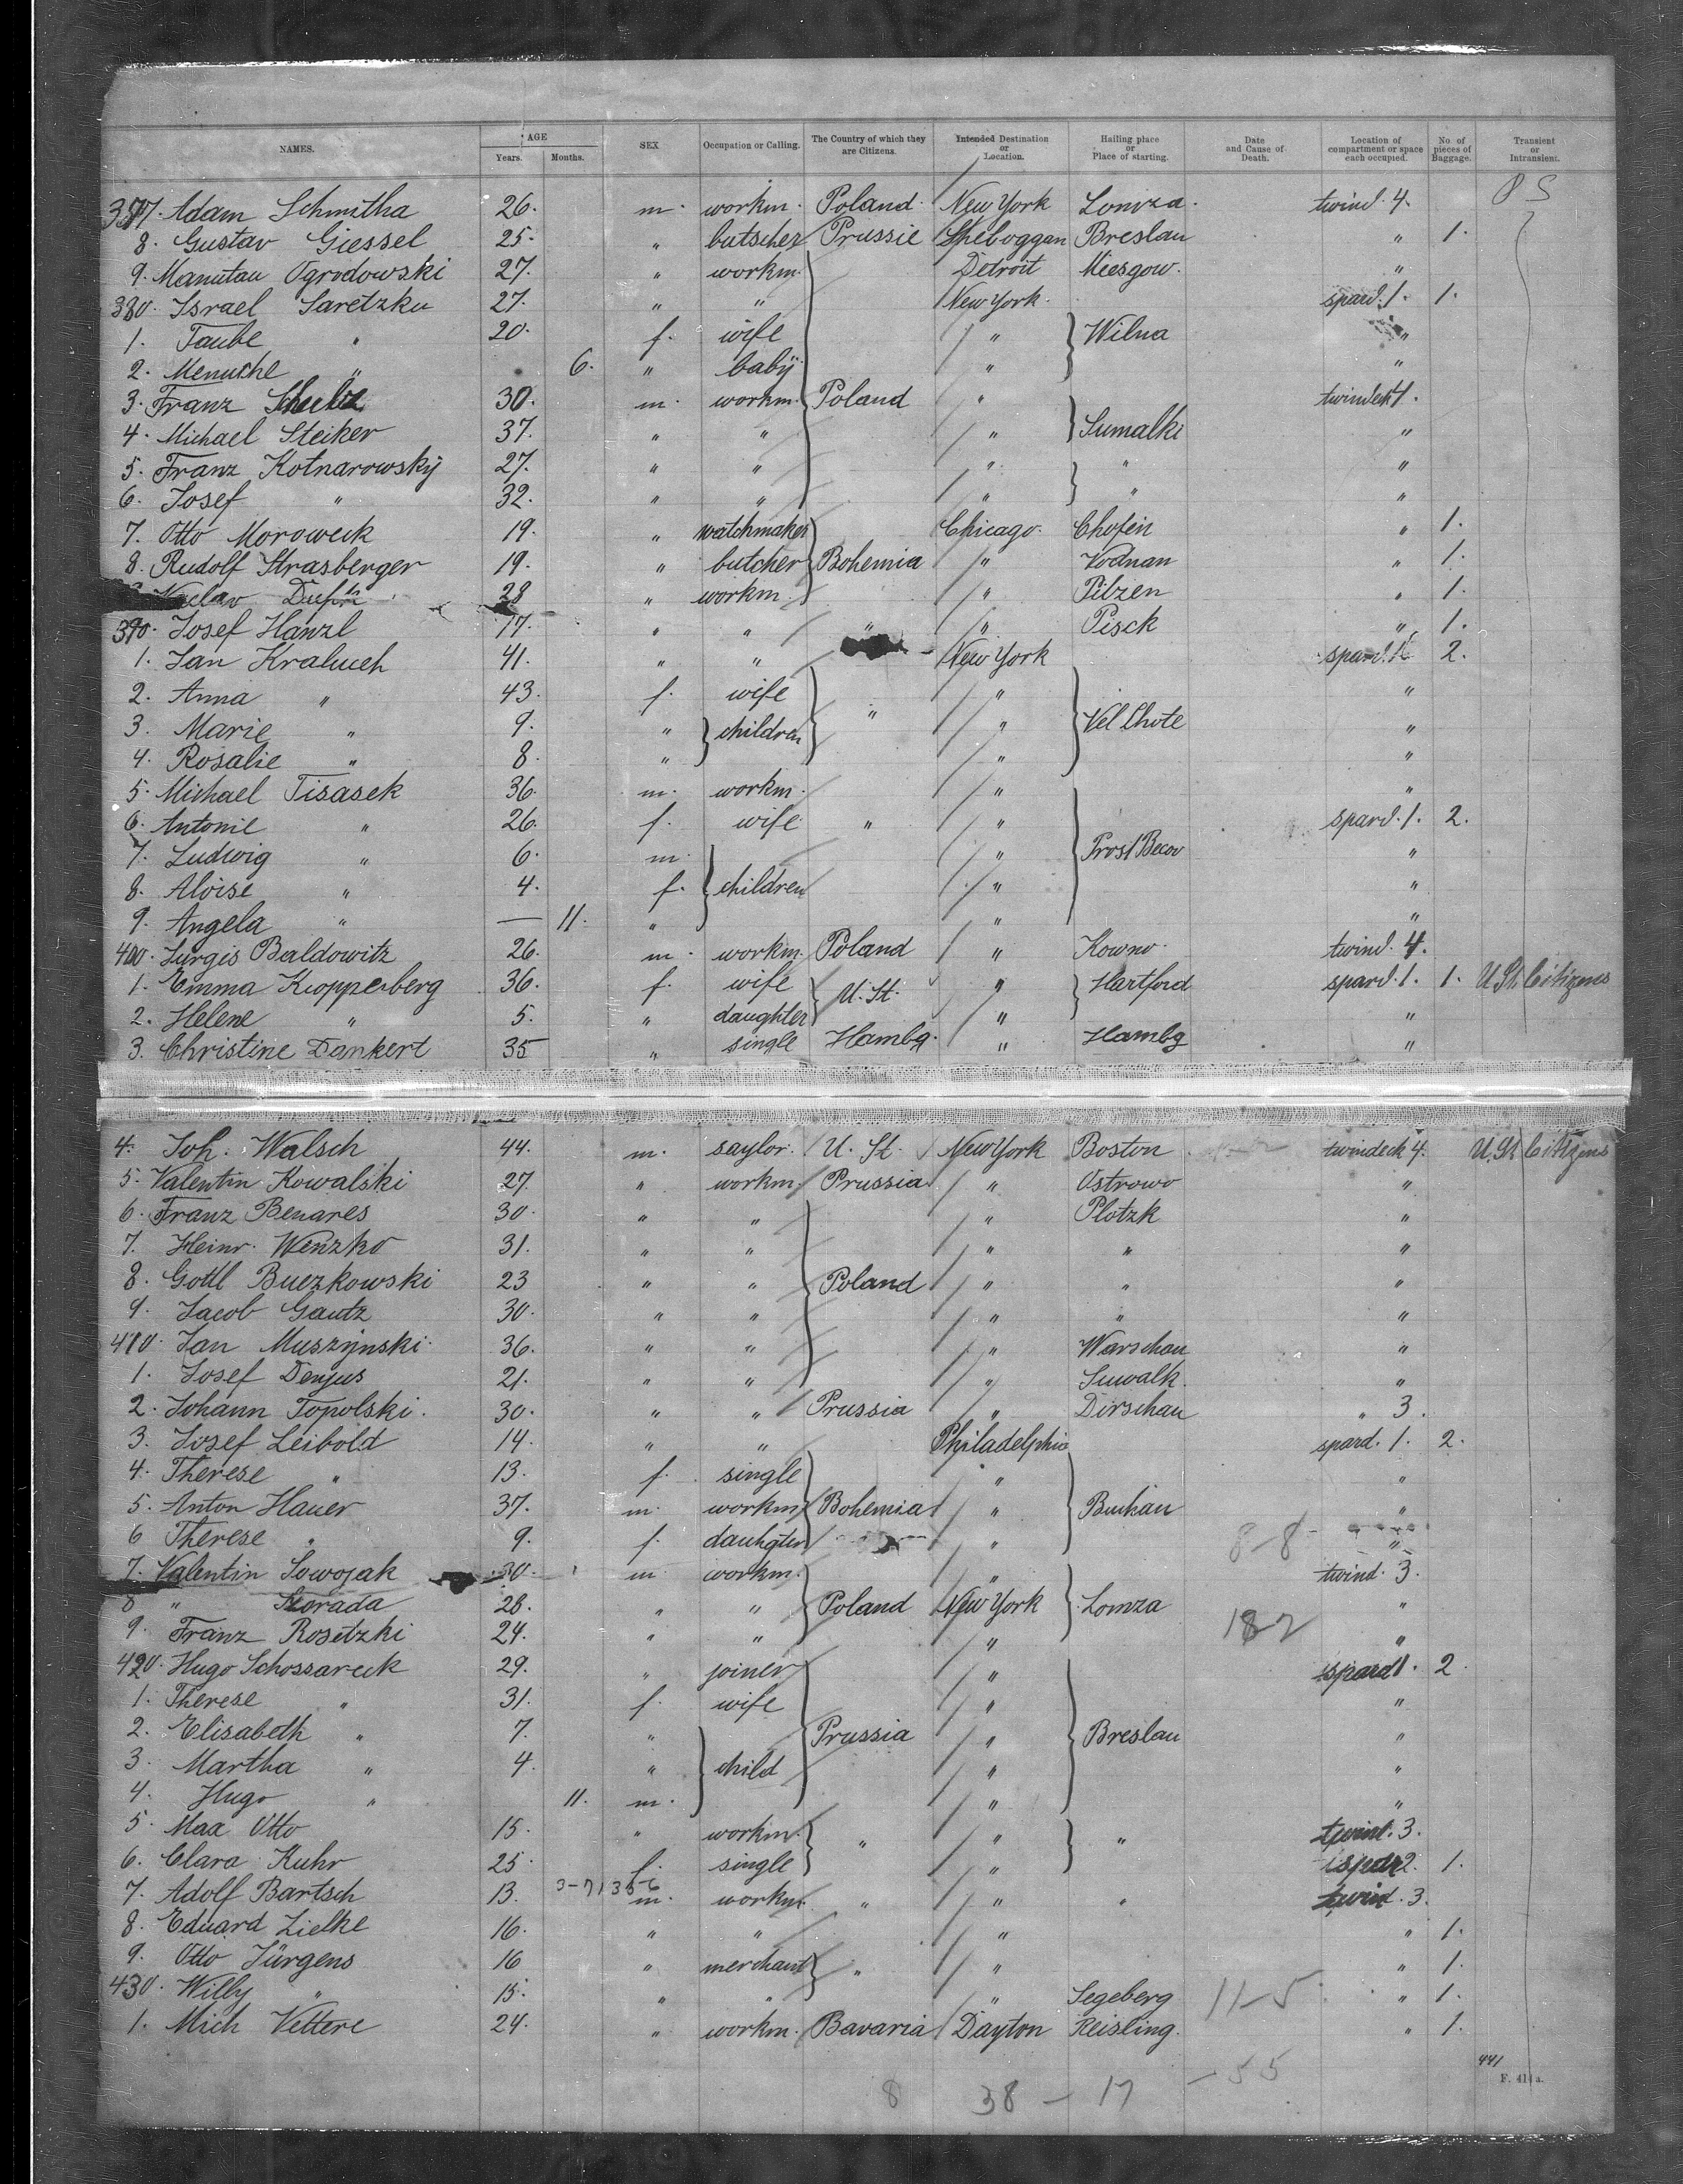 NAMES. AGE Years. Months. SEX Occupation or Calling. The Country of which they are Citizens. Intended Destination or Location. Hailing place or Place of starting. Date and Cause of Death. Location of compartment or space each occupied. No of pieces of Baggage. Transient or Intransient.
377. Adam Schmitha 26. m. workm. Poland New York Lomza. twind. 4.
8. Gustav Giessel 25. " butscher Prussie Sheboggan Breslau " 1.
9. Ogrodowski 27. " workm. Detroit "
380. Israel Saretzku 27. " " New York. spard. 1. 1.
1. Taube " 20. f. wife " Wilna "
2. Menuche " 6. " baby " "
3. Franz 30. m. workm. Poland " twindeck 1.
4. Michael Steiker 37. " " " Sumalki "
5. Franz Kotnarowsky 27. " " " " "
6. Josef " 32. " " " " "
7. Otto Moroweck 19. " watchmaker Chicago. Chofein " 1.
8. Rudolf Strasberger 19. " butcher Bohemia " Vodnan " 1.
28 " workm. " Pilzen " 1.
390. Josef Hanzl 17. " " " " Pisck " 1.
1. Jan Kraluch 41. " " New York spard. 1. 2.
2. Anna " 43. f. wife " " "
3. Marie " 9. " children " Vel Lhote "
4. Rosalie " 8. " " "
5. Michael Tisasek 36. m. workm. " "
6. Antonie " 26. f. wife " " spard. 1. 2.
7. Ludwig " 6. m. " Prost Becov "
8. Aloise " 4. f. children " "
9. Angela " — 11. " " "
400. Jurgis Baldowitz 26. m. workm. Poland " Kowno. twind. 4.
1. Emma Kropperberg 36. f. wife U. St. " Hartford spard. 1. 1. U. St. Citizens
2. Helene " 5. " daughter " "
3. Christine Dankert 35 " single Hambg. " Hambg "
4. Joh. Walsch 44. m. saylor. U. St. New York Boston twindeck 4. U. St. Citizens
5. Valentin Kowalski 27. " workm. Prussia " Ostrowo "
6. Franz Benares 30. " " " Plotzk "
7. Heinr. Wenzko 31. " " " " "
8. Gottl Buczkowski 23 " " Poland " " "
9. Jacob Gautz 30. " " " " "
410. Jan Muszijnski. 36. " " " Warschau "
1. Josef Denjus 21. " " " Suwalk. "
2. Johann Topolski. 30. " " Prussia " Dirschau " 3.
3. Josef Leibold 14. " " Philadelphia spard. 1. 2.
4. Therese " 13. f. single " "
5. Anton Hauer 37. m. workm. Bohemia " Buchau "
6 Therese " 9. f. dauhgter " 8-8- "
7. Valentin Sowojak 30. m. workm. " twind. 3.
8 " 28. " " Poland New York Lomza "
9. Franz Rosetzki 24. " " " 182 "
420. Hugo Schossareck 29. " joiner " spard 1. 2.
1. Therese " 31. f. wife " "
2. Elisabeth " 7. " Prussia " Breslau "
3. Martha " 4. " child " "
4. Hugo " 11. m. " "
5. Max Otto 15. " workm. " " " twind. 3.
6. Clara Kuhr 25. f. single " spdr 2. 1.
7. Adolf Bartsch 13. m. workm. " " " twind. 3.
8. Eduard Zielke 16. " " " " 1.
9. Otto Jürgens 16 " merchant " " " 1.
430. Willy " 15. " " " Segeberg 11-5 " 1.
1. Mich Vettere 24. " workm. Bavaria Dayton Reisling. " 1.
8 38 - 17 - 55
441
F. 414a.